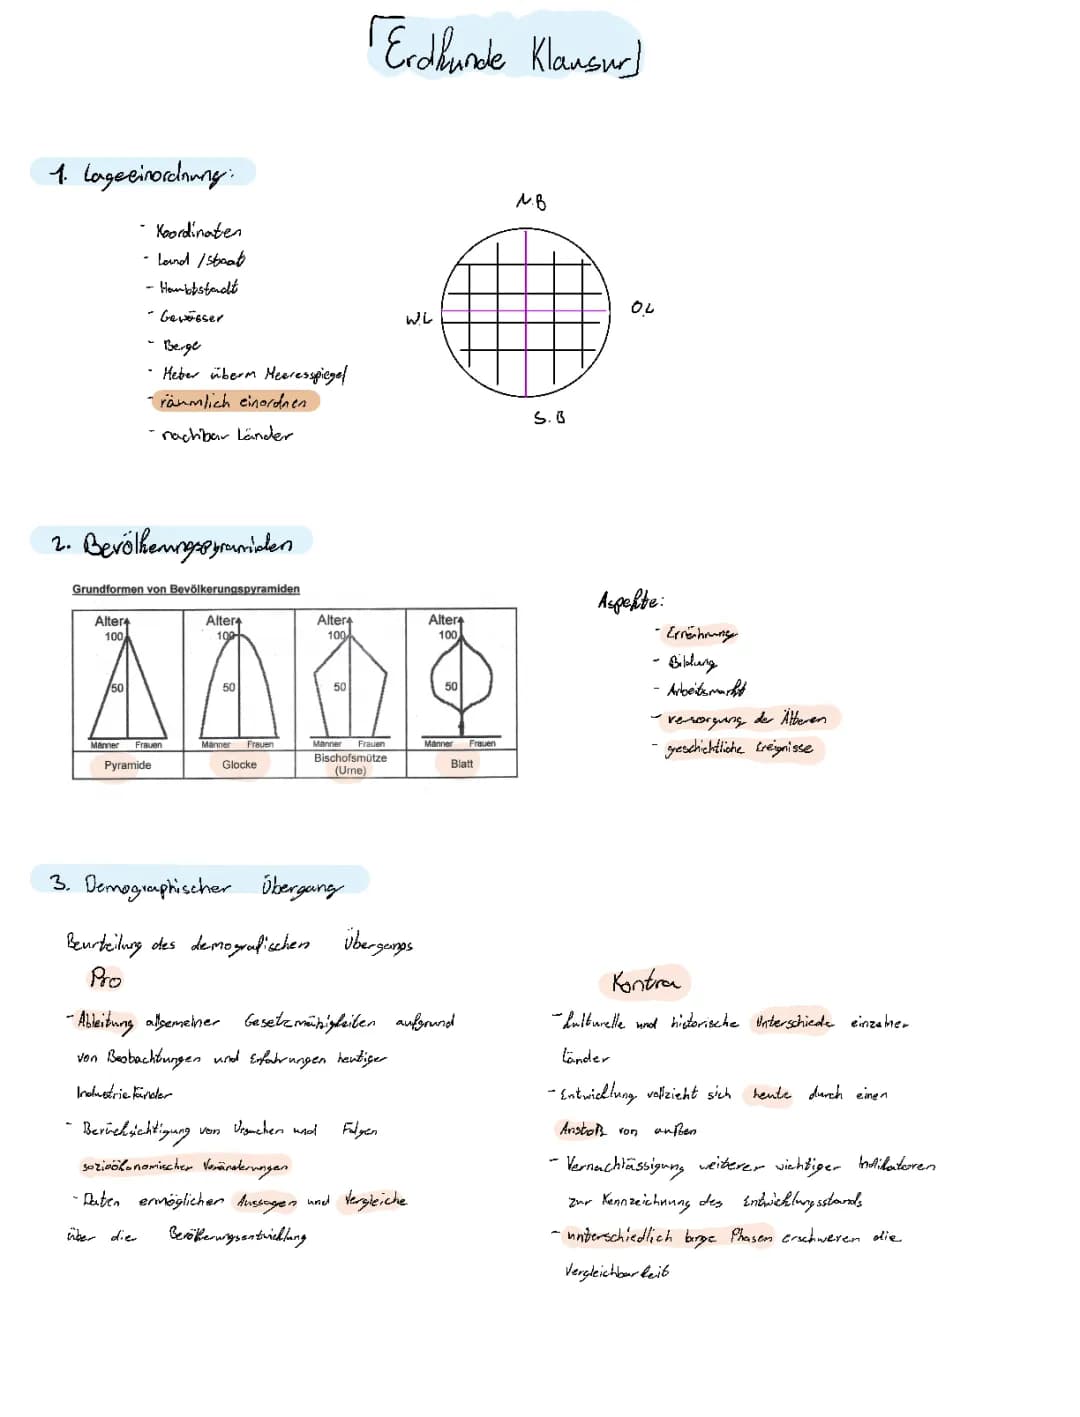 Erdkunde Klausur
1. Lageeinordnung:
- Koordinaten
- Land / Staat
- Hauptstadt
- Gewässer
- Berge
- Meter überm Meeresspiegel
- räumlich einordnen
- nachbar Länder
N.B
W.L
O.L
S.B
2. Bevölkerungspyramiden
Grundformen von Bevölkerungspyramiden
Alter Alter Alter Alter
100 100 100 100
50 50 50 50
Männer Frauen Männer Frauen Männer Frauen Männer Frauen
Pyramide Glocke Bischofsmütze Blatt
(Urne)
Aspekte:
- Ernährung
- Bildung
- Arbeitsmarkt
- versorgung der Älteren
- geschichtliche Ereignisse
3. Demographischer Übergang
Beurteilung des demografischen Übergangs
Pro
- Ableitung allgemeiner Gesetzmäßigkeiten aufgrund
von Beobachtungen und Erfahrungen heutiger
Industrieländer
- Berücksichtigung von Ursachen und Folgen
sozioökonomischer Veränderungen
- Daten ermöglichen Aussagen und Vergleiche
über die Bevölkerungsentwicklung
Kontra
- kulturelle und historische Unterschiede einzelner
Länder
- Entwicklung vollzieht sich heute durch einen
Anstoß von außen
- Vernachlässigung weiterer wichtiger Indikatoren
zur Kennzeichnung des Entwicklungsstands
- unterschiedlich lange Phasen erschweren die
Vergleichbarkeit